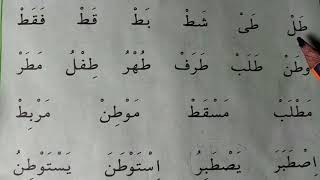 طَلْ طَىْ شَطْ بَطْ قَطْ فَقَطْ
وَطَنْ طَلَبْ طَرَفْ طُهْرُ طِفْلُ مَطَرْ
مَطْلَبْ مَسْقَطْ مَوْطِنْ مَرْبِطْ
اِصْطَبَرَ يَصْطَبِرُ اِسْتَوْطَنَ يَسْتَوْطِنُ